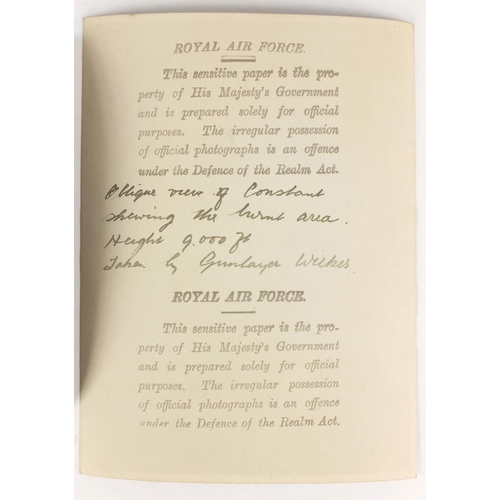 ROYAL AIR FORCE.
This sensitive paper is the pro-
perty of His Majesty's Government
and is prepared solely for official
purposes. The irregular possession
of official photographs is an offence
under the Defence of the Realm Act.
Oblique view of Constant
shewing the burnt area.
Height 9.000 ft
Taken by Gunlayer Wilkes
ROYAL AIR FORCE.
This sensitive paper is the pro-
perty of His Majesty's Government
and is prepared solely for official
purposes. The irregular possession
of official photographs is an offence
under the Defence of the Realm Act.